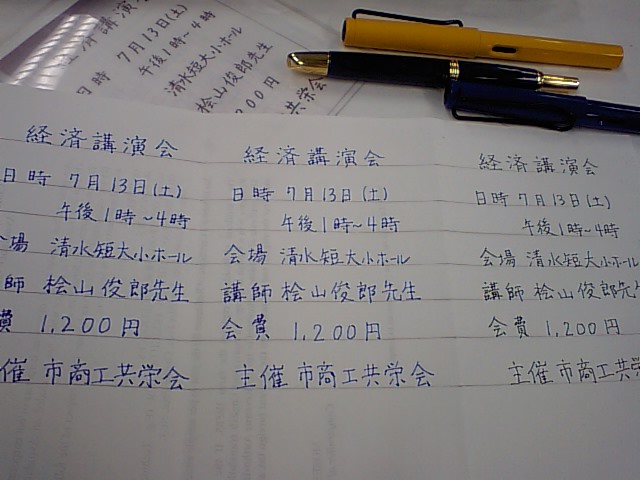 経済講演会
日時 7月13日(土)
午後1時~4時
清水短大小ホール
桧山俊郎先生
,200円
共栄会
経済講演会
日時 7月13日(土)
午後1時~4時
会場 清水短大小ホール
講師 桧山俊郎先生
会費 1,200円
催 市商工共栄会
経済講演会
日時 7月13日(土)
午後1時~4時
会場 清水短大小ホール
講師 桧山俊郎先生
会費 1,200円
主催 市商工共栄会
経済講演会
日時 7月13日(土)
午後1時~4時
会場 清水短大小ホール
講師 桧山俊郎先生
会費 1,200円
主催 市商工共栄